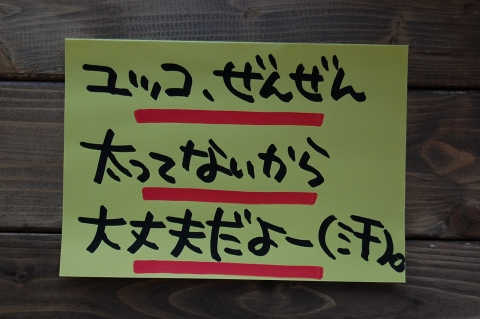 ユッコ、ぜんぜん
太ってないから
大丈夫だよー(汗)。